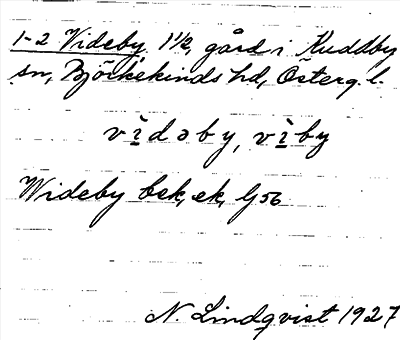 1-2 Videby 1 1/2, gård i Kuddby
sn, Björkekinds hd, Österg. l.
vı̀dəby, vı̀by
Wideby bek, ek, Gj 56
N. Lindqvist 1927